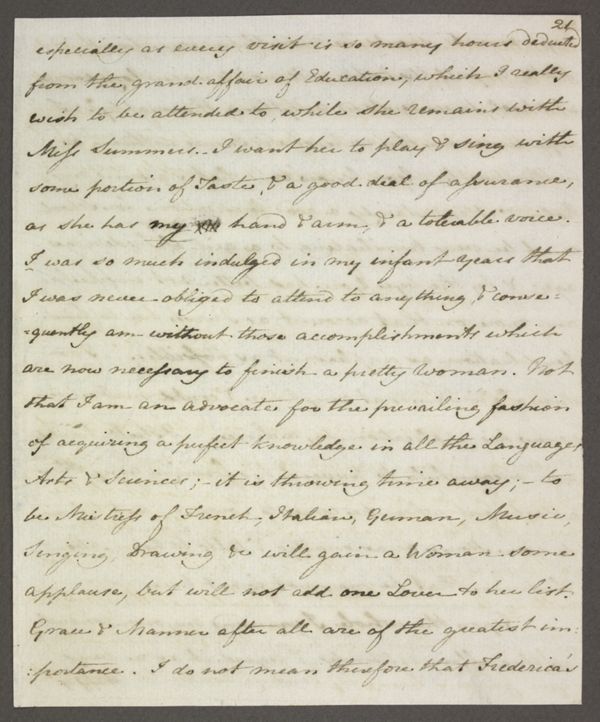 21
especially as every visit is so many hours deducted
from the grand affair of Education, which I really
wish to be attended to, while she remains with
Miss Summers. I want her to play & sing with
some portion of Taste, & a good deal of assurance,
as she has my hand & arm, & a tolerable voice.
I was so much indulged in my infant years that
I was never obliged to attend to anything, & conse=
=quently am without those accomplishments which
are now necessary to finish a pretty Woman. Not
that I am an advocate for the prevailing fashion
of acquiring a perfect knowledge in all the Languages
Arts & Sciences; - it is throwing time away; - to
be Mistress of French, Italian, German, Music,
Singing, Drawing &c will gain a Woman some
applause, but will not add one Lover to her list.
Grace & Manner after all are of the greatest im:
:portance. I do not mean therefore that Frederica's